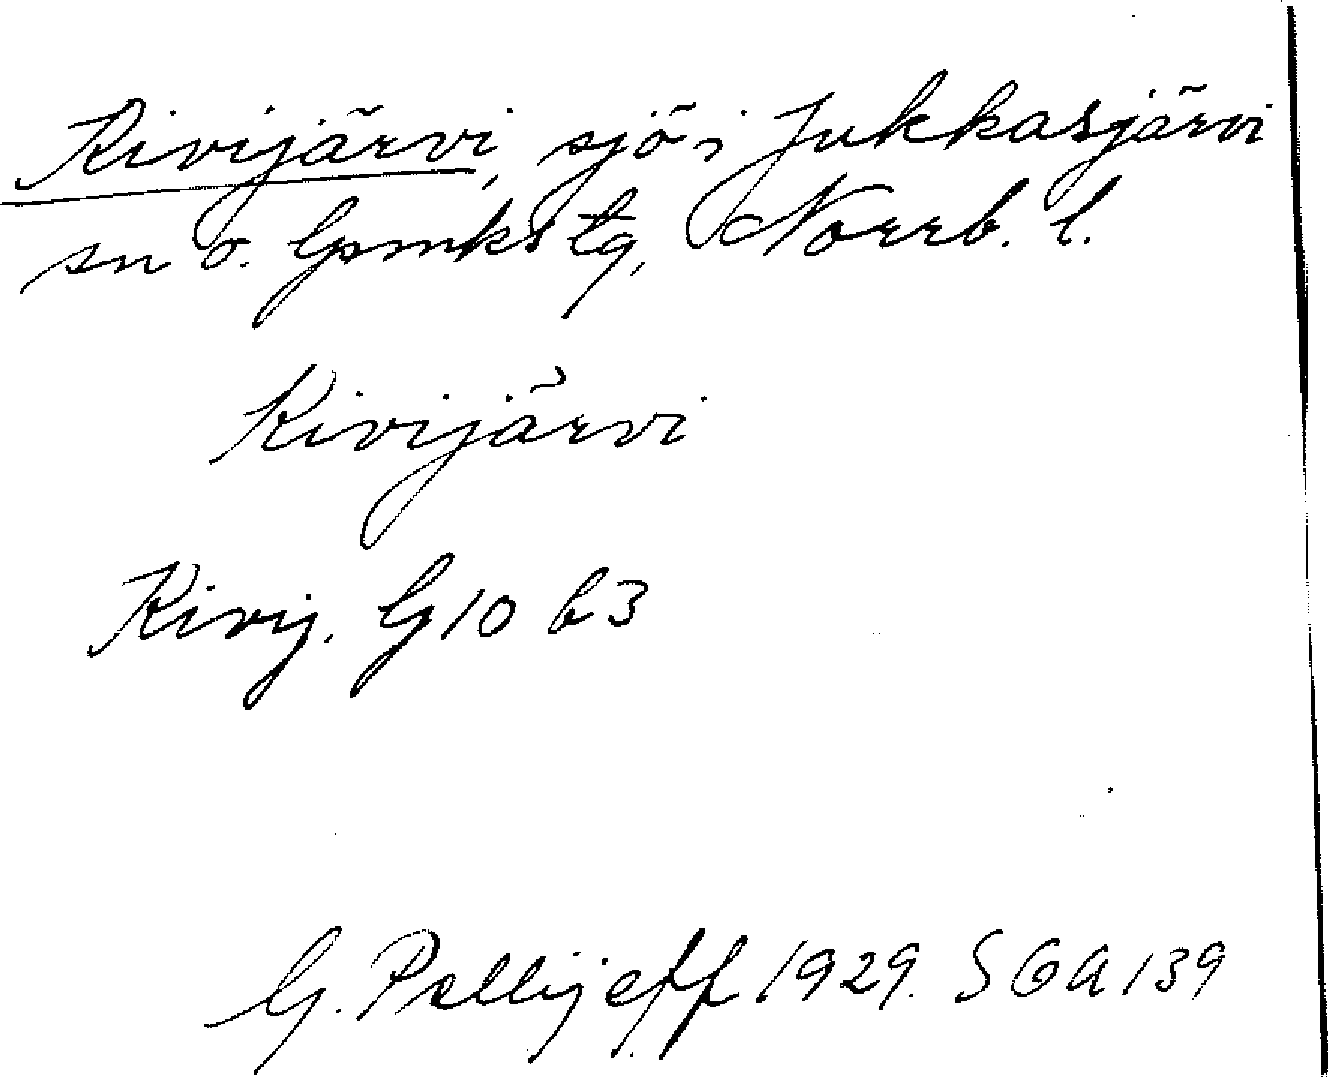 Kivijärvi, sjö i Jukkasjärvi
sn o. lpmks tg, Norrb. l.
Kivijärvi
Kivij. G10 b3
G. Pellijeff 1929. SOA 139